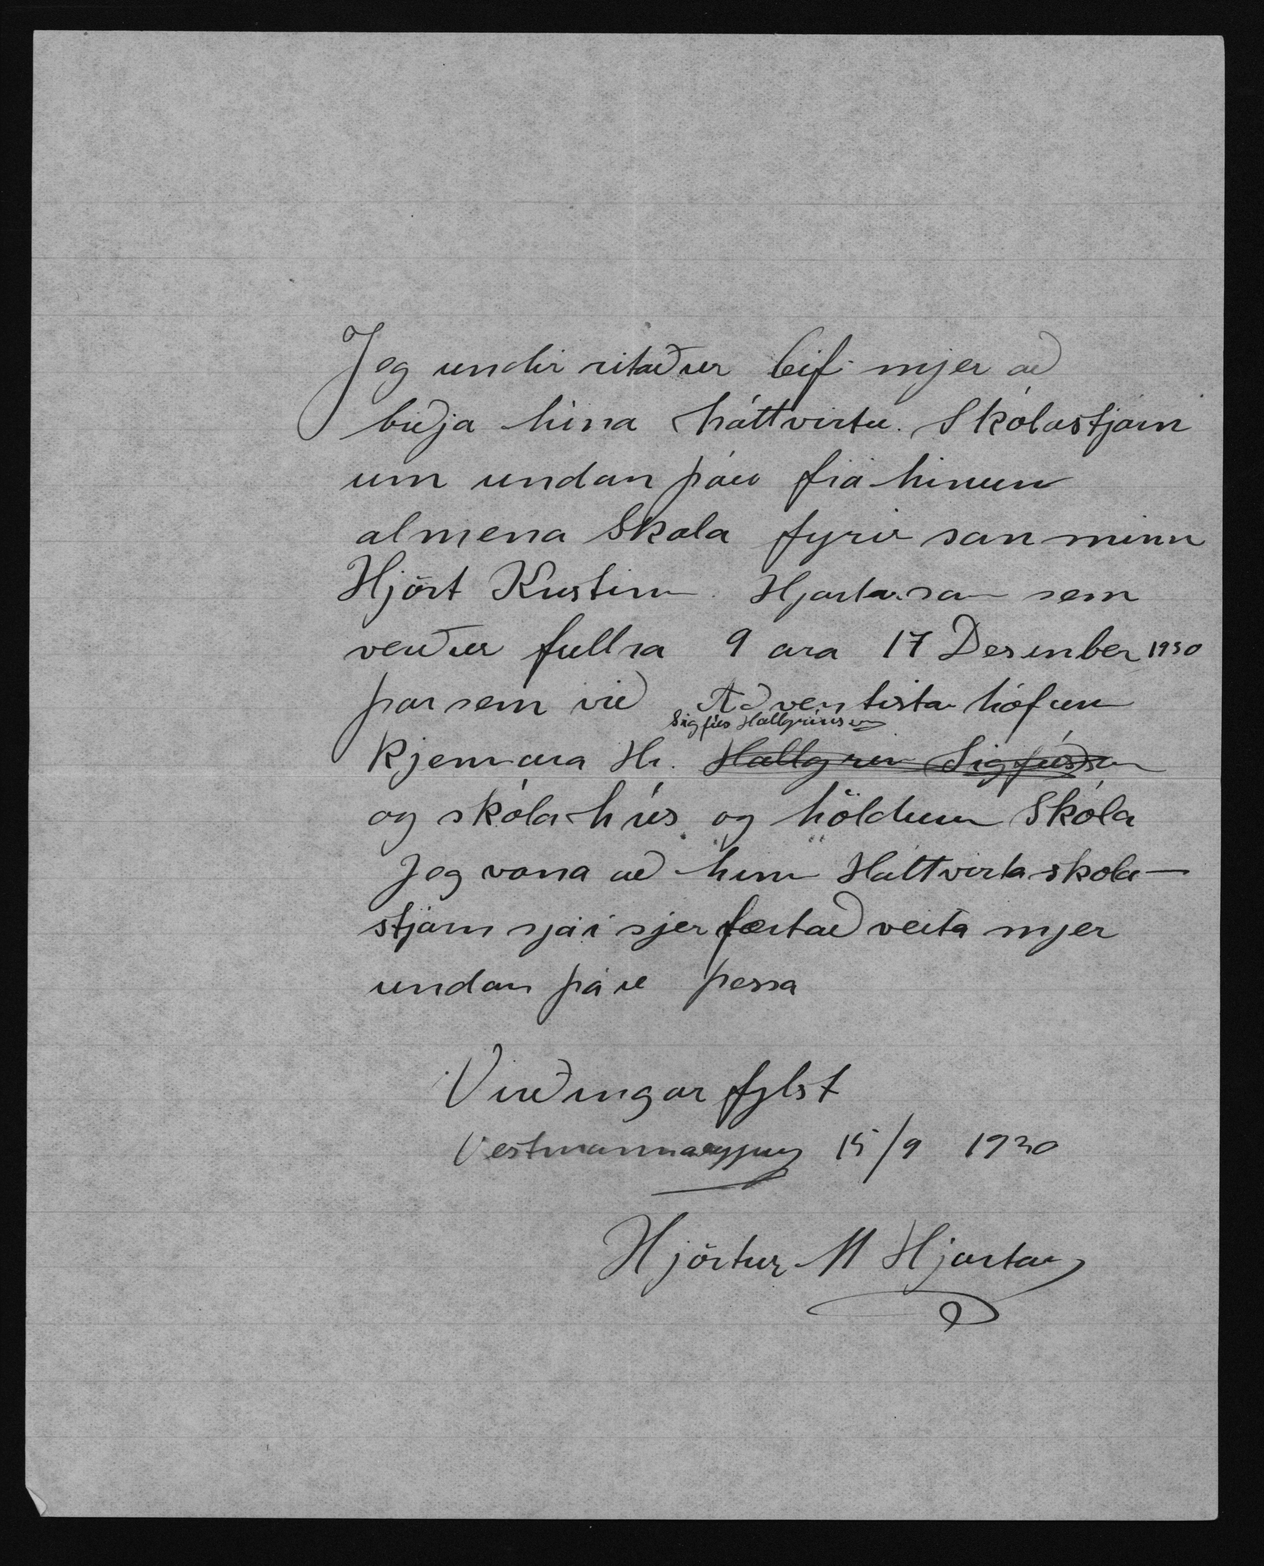 Jeg undir ritaður leifi mjer að
biðja hina háttvirtu Skólastjórn
um undan þáu frá hinum
almena Skola fyrir son minn
Hjört Kristinn Hjartarson sem
verður fullra 9 ara 17 Desember 1930
þar sem við Aðventistar höfum
Sigfús Hallgrímsson
kjennara Hr. Hallgrim Sigfússon
og skóla hús og höldum Skóla
Jeg vona að hin Háttvirta skola-
stjórn sjái sjer fært að veita mjer
undan þáu þessa
Virðingar fylst
Vestmannaeyjum 15/9 1930
Hjörtur M Hjartar